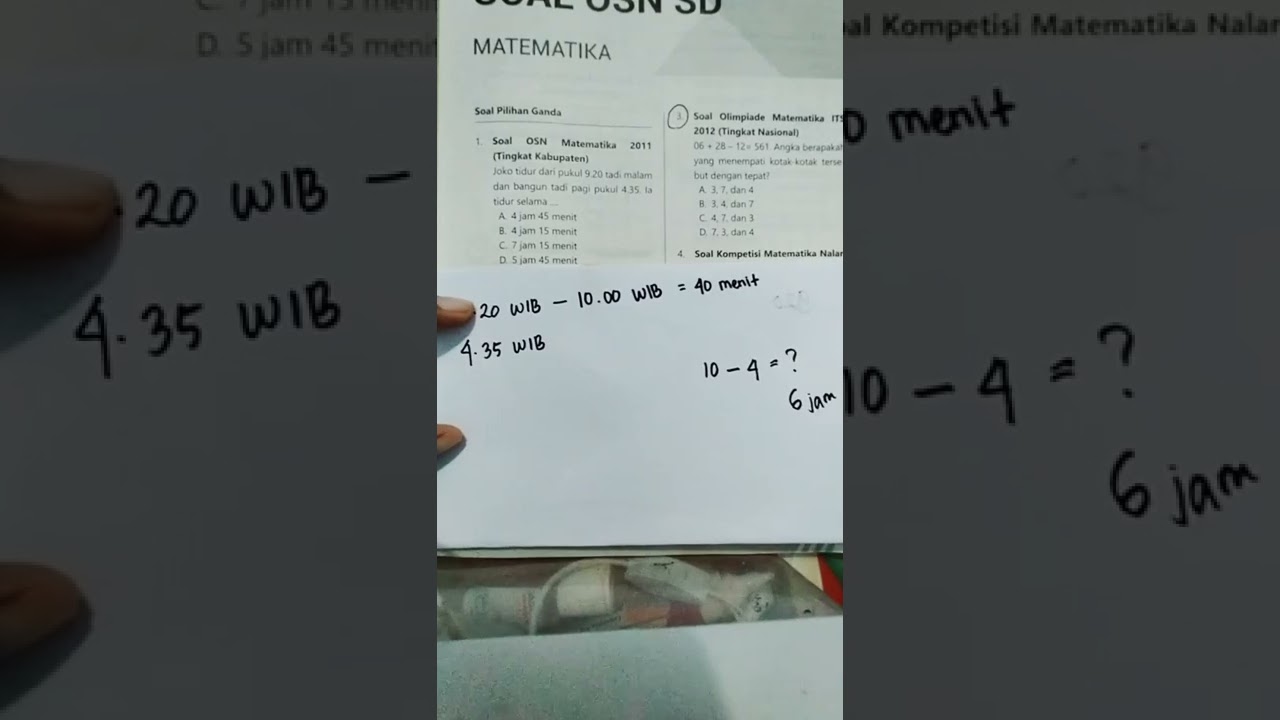 SOAL OSN SD
MATEMATIKA
Soal Pilihan Ganda
1. Soal OSN Matematika 2011
(Tingkat Kabupaten)
Joko tidur dari pukul 9.20 tadi malam
dan bangun tadi pagi pukul 4.35. Ia
tidur selama ....
A. 4 jam 45 menit
B. 4 jam 15 menit
C. 7 jam 15 menit
D. 5 jam 45 menit
3. Soal Olimpiade Matematika ITS
2012 (Tingkat Nasional)
06 + 28 – 12= 561. Angka berapakah
yang menempati kotak-kotak terse
but dengan tepat?
A. 3, 7, dan 4
B. 3, 4, dan 7
C. 4, 7, dan 3
D. 7, 3, dan 4
4. Soal Kompetisi Matematika Nalar
.20 WIB – 10.00 WIB = 40 menit
4.35 WIB
10 – 4 = ?
6 jam
C. 7 jam 15 meni
D. 5 jam 45 meni
.20 WIB –
4.35 WIB
al Kompetisi Matematika Nalar
0 menit
10 – 4 = ?
6 jam